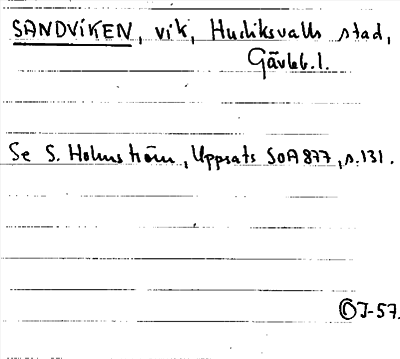 SANDVIKEN, vik, Hudiksvalls stad,
Gävleb. l.
Se S. Holmström, Uppsats SOA 877, s. 131.
OJ-57.